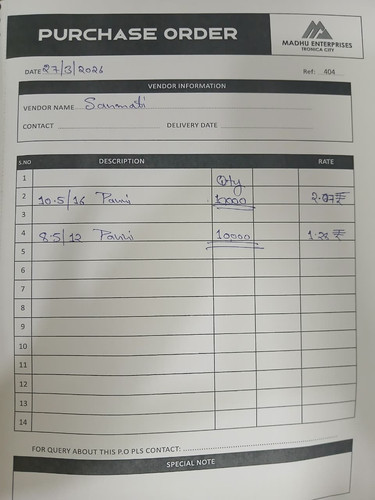 PURCHASE ORDER
MADHU ENTERPRISES
TRONICA CITY
DATE 27/3/2026
Ref: 404
VENDOR INFORMATION
VENDOR NAME Sanmati
CONTACT DELIVERY DATE
S.NO DESCRIPTION RATE
1 Qty
2 10.5/16 10000 2.07₹
3
4 8.5/12 10,000 1.22 ₹
5
6
7
8
9
10
11
12
13
14
FOR QUERY ABOUT THIS P.O PLS CONTACT:
SPECIAL NOTE